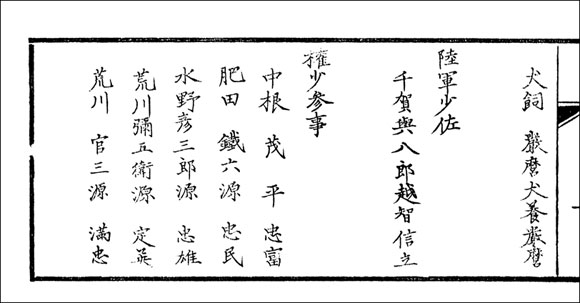 犬飼 嚴麿犬養嚴麿
陸軍少佐
千賀與八郎越智信立
權少參事
中根茂平忠富
肥田鐵六源忠民
水野彥三郎源忠雄
荒川彌五衛源定英
荒川官三源滿忠